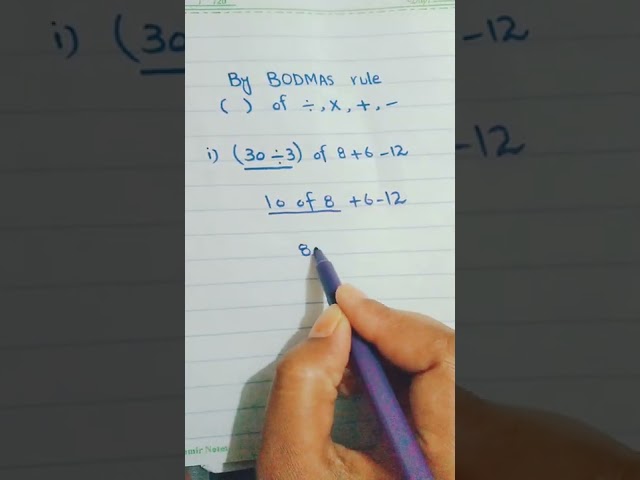 By BODMAS rule
( ) of ÷, x, +, -
i) (30 ÷ 3) of 8 + 6 - 12
10 of 8 + 6 - 12
8